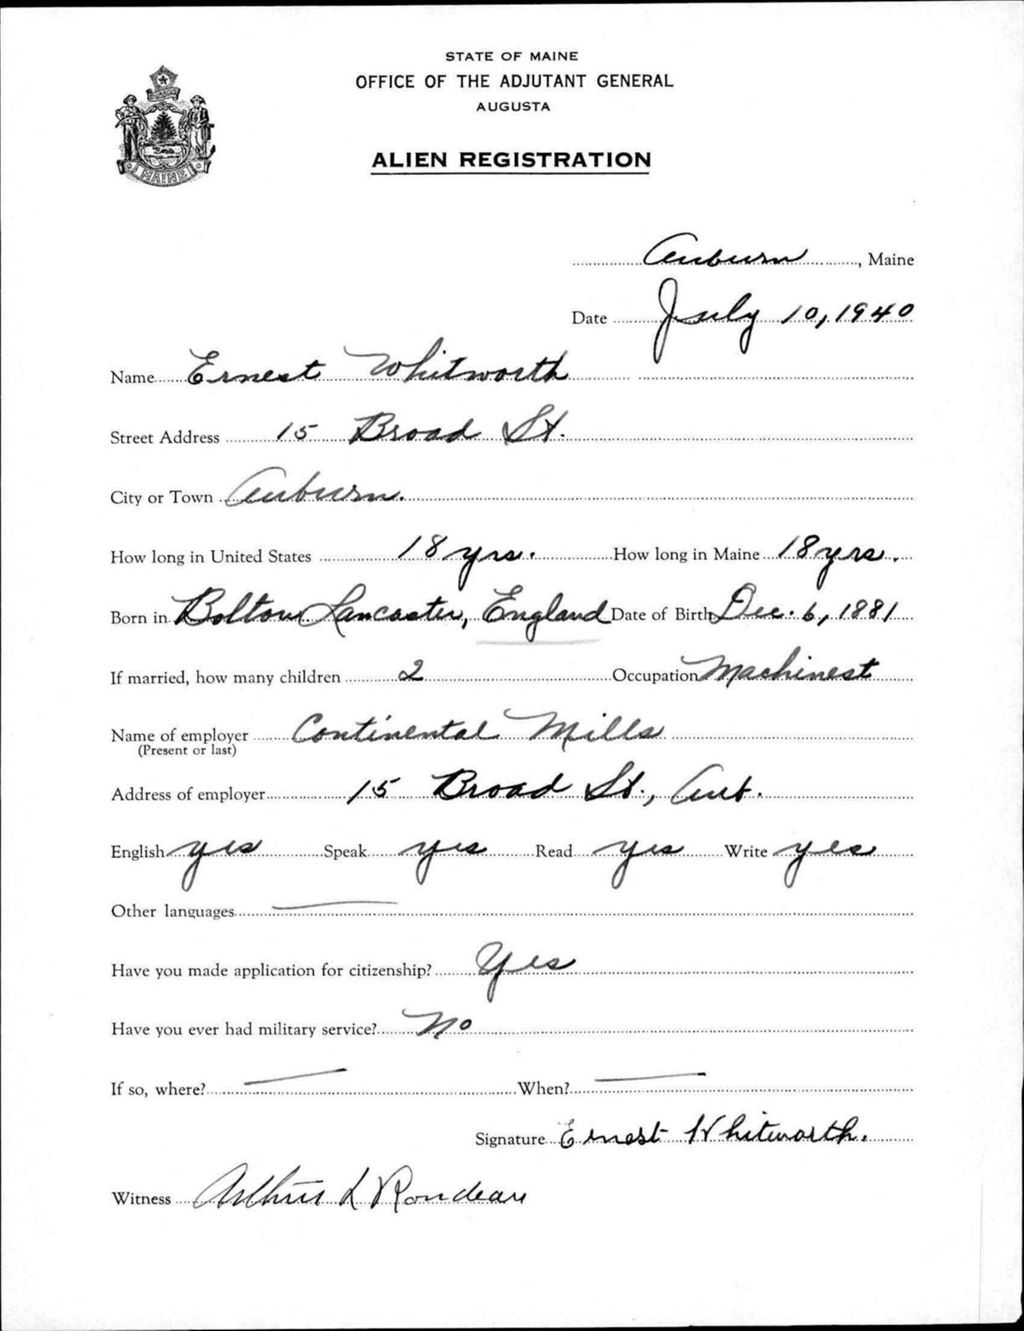 STATE OF MAINE
OFFICE OF THE ADJUTANT GENERAL
AUGUSTA
ALIEN REGISTRATION
MAINE
Auburn, Maine
Date July 10, 1940
Name Ernest Whitworth
Street Address 15 Broad St.
City or Town Auburn.
How long in United States 18 yrs. How long in Maine 18 yrs.
Born in Bolton Lancaster, England Date of Birth Dec. 6, 1881
If married, how many children 2 Occupation Machinest
Name of employer Continental Mills
(Present or last)
Address of employer 15 Broad St., Aub.
English yes Speak yes Read yes Write yes
Other languages
Have you made application for citizenship? Yes
Have you ever had military service? No
If so, where? When?
Signature Ernest Whitworth.
Witness Arthur L Rondeau